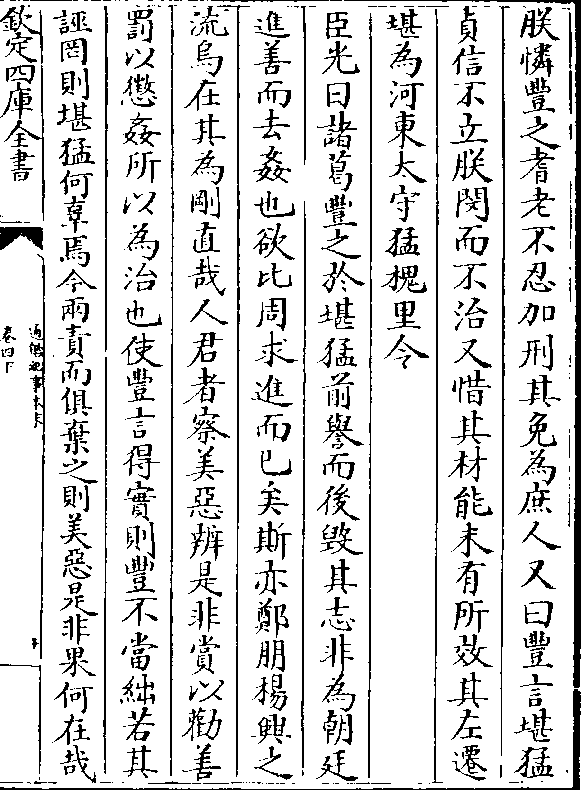 朕憐豐之耆老不忍加刑其免為庶人又曰豐言堪猛
貞信不立朕閔而不治又惜其材能未有所效其左遷
堪為河東太守猛槐里令
臣光曰諸葛豐之於堪猛前譽而後毀其志非為朝廷
進善而去姦也欲比周求進而已矣斯亦鄭朋楊興之
流烏在其為剛直哉人君者察美惡辨是非賞以勸善
罰以懲姦所以為治也使豐言得實則豐不當絀若其
誣罔則堪猛何辜焉今兩責而俱棄之則美惡是非果何在哉
欽定四庫全書
通鑑紀事本末
卷四下